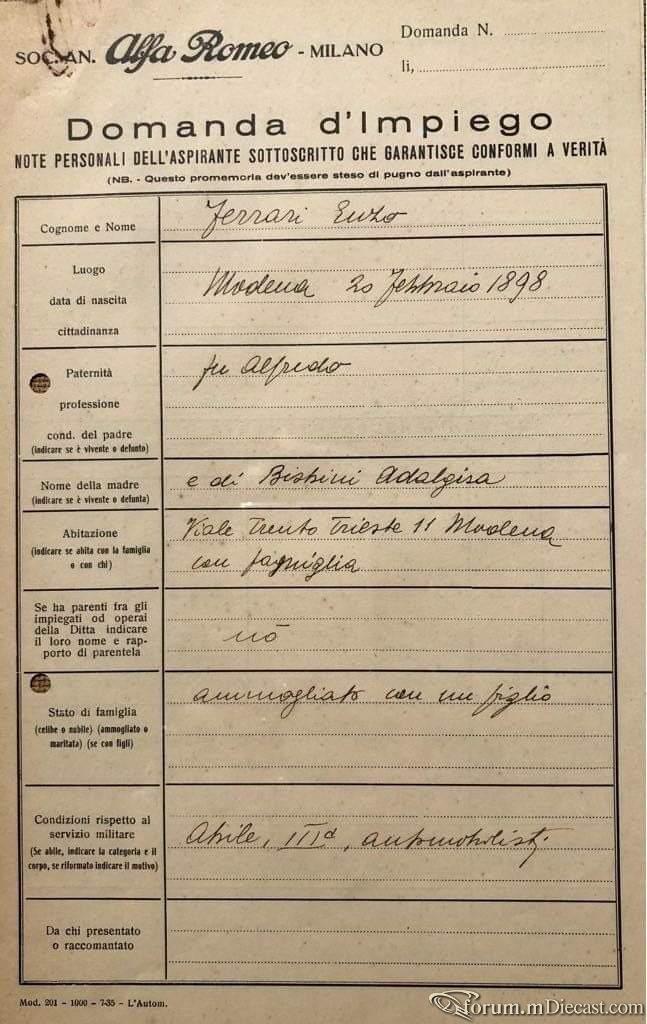 SOC. AN. Alfa Romeo - MILANO
Domanda N.
lì,
Domanda d'Impiego
NOTE PERSONALI DELL'ASPIRANTE SOTTOSCRITTO CHE GARANTISCE CONFORMI A VERITÀ
(NB. - Questo promemoria dev'essere steso di pugno dall'aspirante)
Cognome e Nome
Ferrari Enzo
Luogo
data di nascita
cittadinanza
Modena 20 Febbraio 1898
Paternità
professione
cond. del padre
(indicare se è vivente o defunto)
fu Alfredo
Nome della madre
(indicare se è vivente o defunta)
e di Bisbini Adalgisa
Abitazione
(indicare se abita con la famiglia
o con chi)
Viale Trento Trieste 11 Modena
con famiglia
Se ha parenti fra gli
impiegati od operai
della Ditta indicare
il loro nome e rap-
porto di parentela
nò
Stato di famiglia
(celibe o nubile) (ammogliato o
maritata) (se con figli)
ammogliato con un figlio
Condizioni rispetto al
servizio militare
(Se abile, indicare la categoria e il
corpo, se riformato indicare il motivo)
Abile, IIIª, automobilisti
Da chi presentato
o raccomantato
Mod. 201 - 1000 - 7-35 - L'Autom.
forum.mDiecast.com